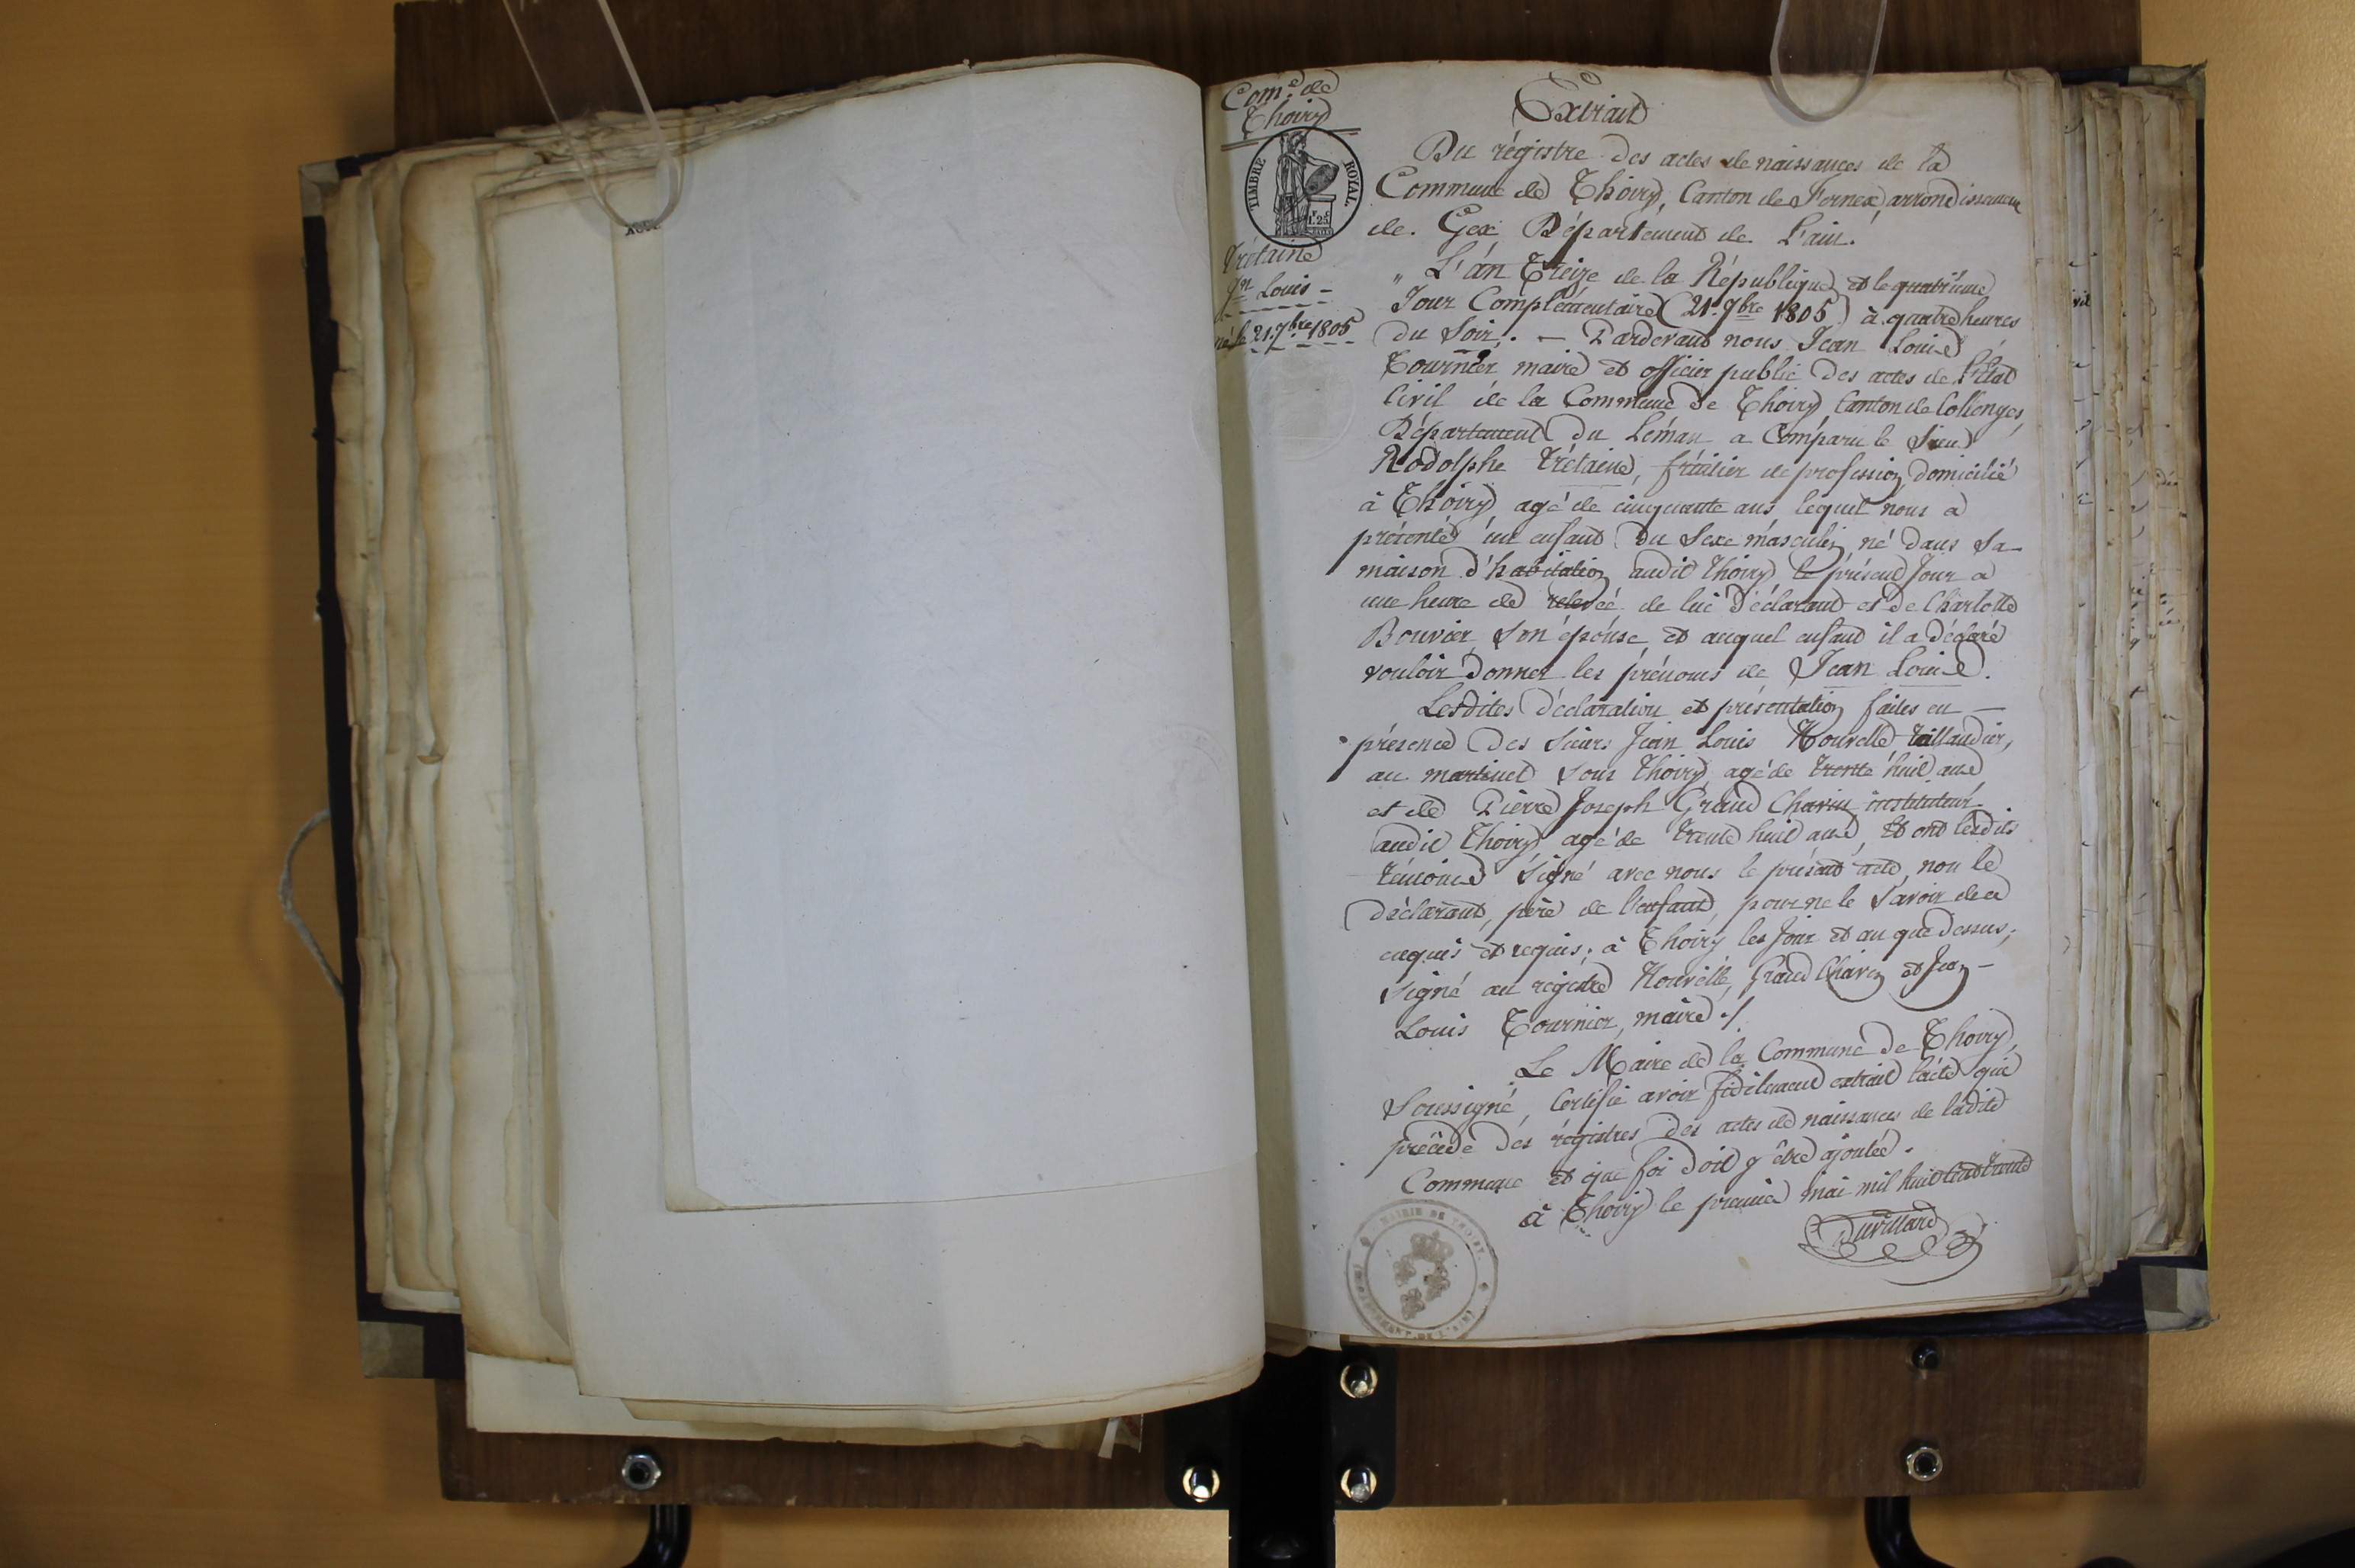 Com.e de
Thoiry
TIMBRE ROYAL.
1.25
Trétaine
Jn Louis -
né le 21. 7bre 1805
Extrait
Du régistre des actes de naissances de la
Commune de Thoiry, Canton de Fernex, arrondissement
de Gex, Département de L'ain.
" L'án treize de la République, et le quatrième
Jour Complémentaire (21. 7bre 1805) à quatre heures
du Soir. — Pardevant nous Jean Louis
Tournier maire et officier public des actes de l'état
Civil de la Commune de Thoiry Canton de Collonges,
Département du Leman a Comparu le Sieur
Rodolphe Trétaine, fruitier de profession, domicilié
à Thoiry, agé de cinquante ans lequel nous a
présenté un enfant du Sexe masculin, né dans Sa
maison d'habitation audit Thoiry, le présent Jour a
une heure de relevée de lui Déclarant et de Charlotte
Bouvier, Son épouse, et auquel enfant il a déclaré
vouloir donner les prénoms de Jean Louis.
Lesdites déclaration et présentation faites en —
présence des Sieurs Jean Louis Nouvelle, taillandier,
au martinet Sous Thoiry, agé de trente huit ans
et de Pierre Joseph Grand Chavin instituteur
audit Thoiry, agé de trente huit ans, Et ont lesdits
témoins Signé avec nous le présent acte, non le
déclarant, père de l'enfant, pour ne le Savoir de ce
enquis et requis; à Thoiry les Jour et an que dessus;
Signé au régistre Nouvelle, Grand Chavin et Jean -
Louis Tournier, maire ./.
Le Maire de la Commune de Thoiry,
Soussigné, Certifie avoir fidèlement extrait l'acte qui
précède des régistres des actes de naissances de ladite
Commune et que foi doit y être ajoutée.
à Thoiry le premier mai mil huit Cent trente
Duvillard
MAIRIE DE THOIRY.
DÉPARTEMENT DE L'AIN